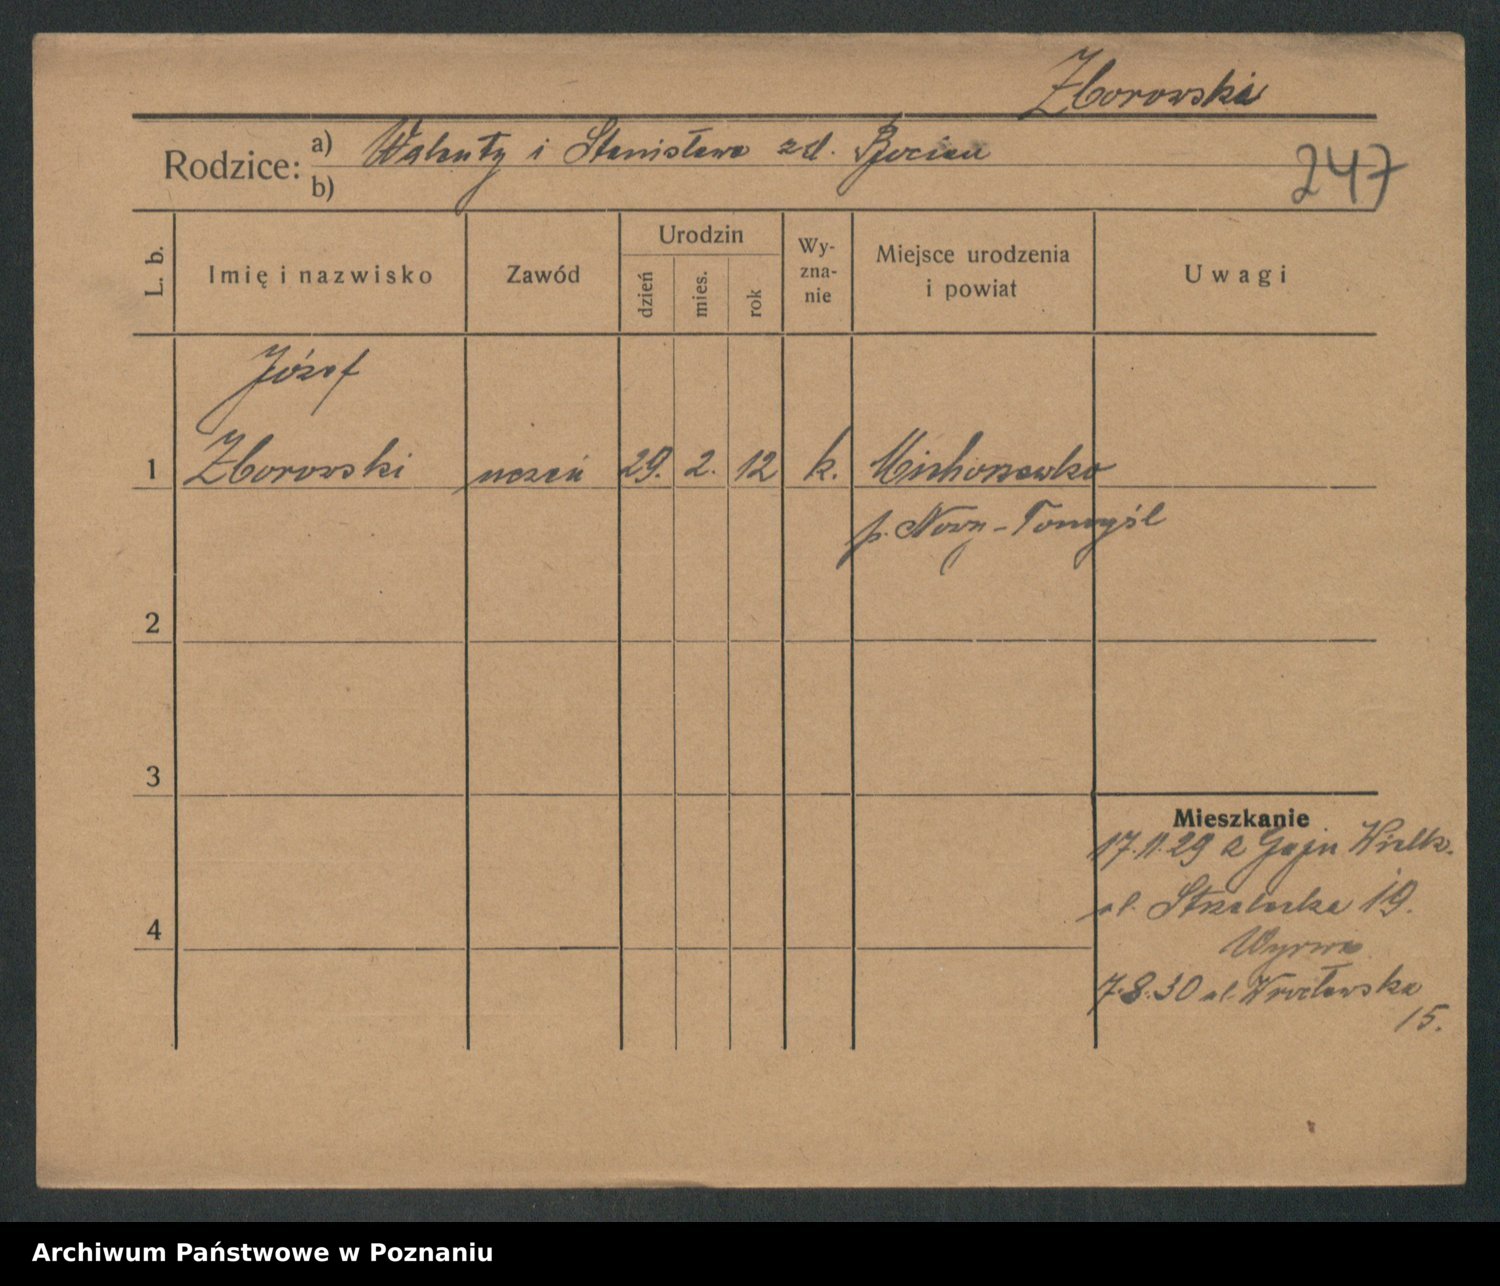 Zborowski
Rodzice: a) Walenty i Stanisława zd. Bocian
b)
247
L. b. Imię i nazwisko Zawód Urodzin dzień mies. rok Wy-zna-nie Miejsce urodzenia i powiat Uwagi
Józef
1 Zborowski uczeń 29. 2. 12 k. Michorzewko
p. Nowy-Tomyśl
2
3
Mieszkanie
17.11.29 z Gaju Wielk.
ul. Strzelecka 19.
4
7.8.30 ul. Wrocławska
15.
Archiwum Państwowe w Poznaniu